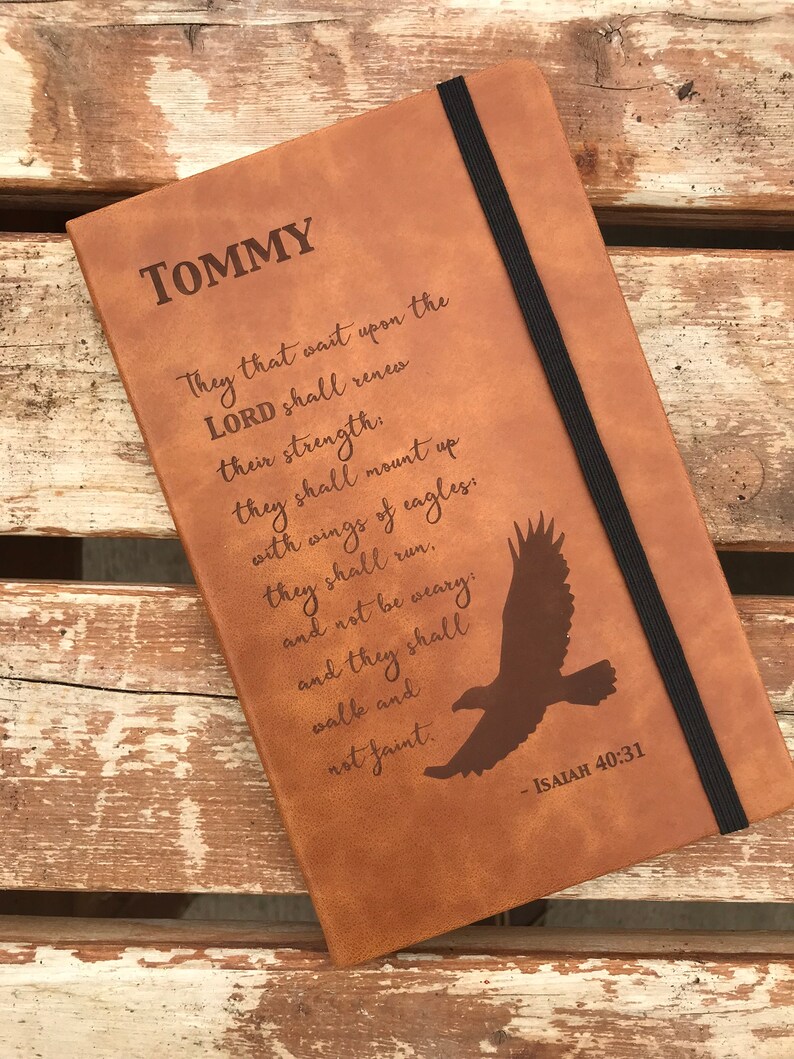 TOMMY
They that wait upon the
LORD shall renew
their strength;
they shall mount up
with wings of eagles;
they shall run,
and not be weary;
and they shall
walk and
not faint.
- ISAIAH 40:31